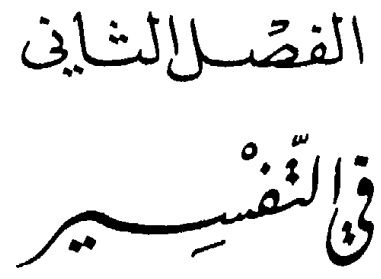 الفصل الثاني
في التّفْسِير